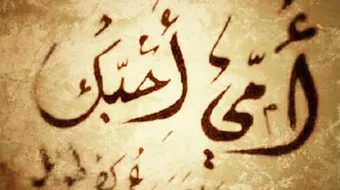 أُمّي أُحبّك